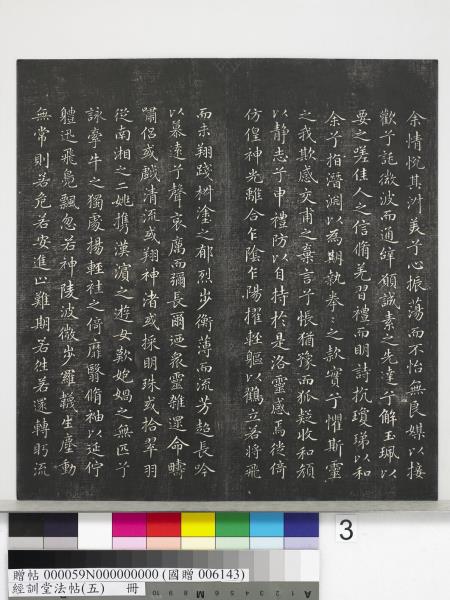 余情悅其淑美兮心振蕩而不怡無良媒以接
歡兮託微波而通辭願誠素之先達兮解玉珮以
要之嗟佳人之信脩羌習禮而明詩抗瓊珶以和
余兮指潛淵以為期執拳々之款實兮懼斯靈
之我欺感交甫之棄言兮悵猶豫而狐疑收和顏
以靜志兮申禮防以自持於是洛靈感焉徙倚
仿偟神光離合乍陰乍陽擢輕軀以鶴立若將飛
而未翔踐椒塗之郁烈步衡薄而流芳超長吟
以慕遠兮聲哀厲而彌長爾迺眾靈雜遝命疇
嘯侶或戲清流或翔神渚或採明珠或拾翠羽
從南湘之二姚攜漢濱之遊女歎匏媧之無匹兮
詠牽牛之獨處揚輕袿之倚靡翳脩袖以延佇
軆迅飛鳧飄忽若神陵波微步羅韈生塵動
無常則若危若安進止難期若往若還轉眄流
3
贈帖 000059N000000000 (國贈 006143)
經訓堂法帖(五) 冊